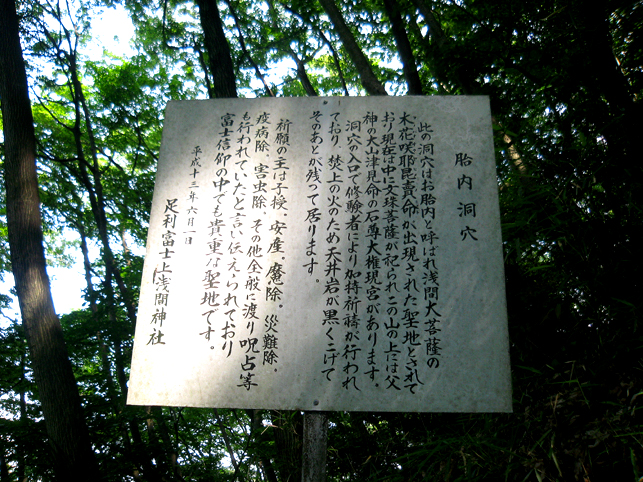 胎内洞穴
此の洞穴はお胎内と呼ばれ浅間大菩薩の
木花咲耶毘賣命が出現された聖地とされて
おり現在は中に文珠菩薩が祀られこの山の上には父
神の大山津見命の石尊大権現宮があります。
洞穴の入口で修験者により加持祈祷が行われ
ており、焚上の火のため天井岩が黒くこげて
そのあとが残って居ります。
祈願の主は子授、安産、魔除、災難除、
疫病除、害虫除、その他全般に渡り呪占等
も行われていたと言い伝えられており
富士信仰の中でも貴重な聖地です。
平成十三年六月一日
足利富士上浅間神社